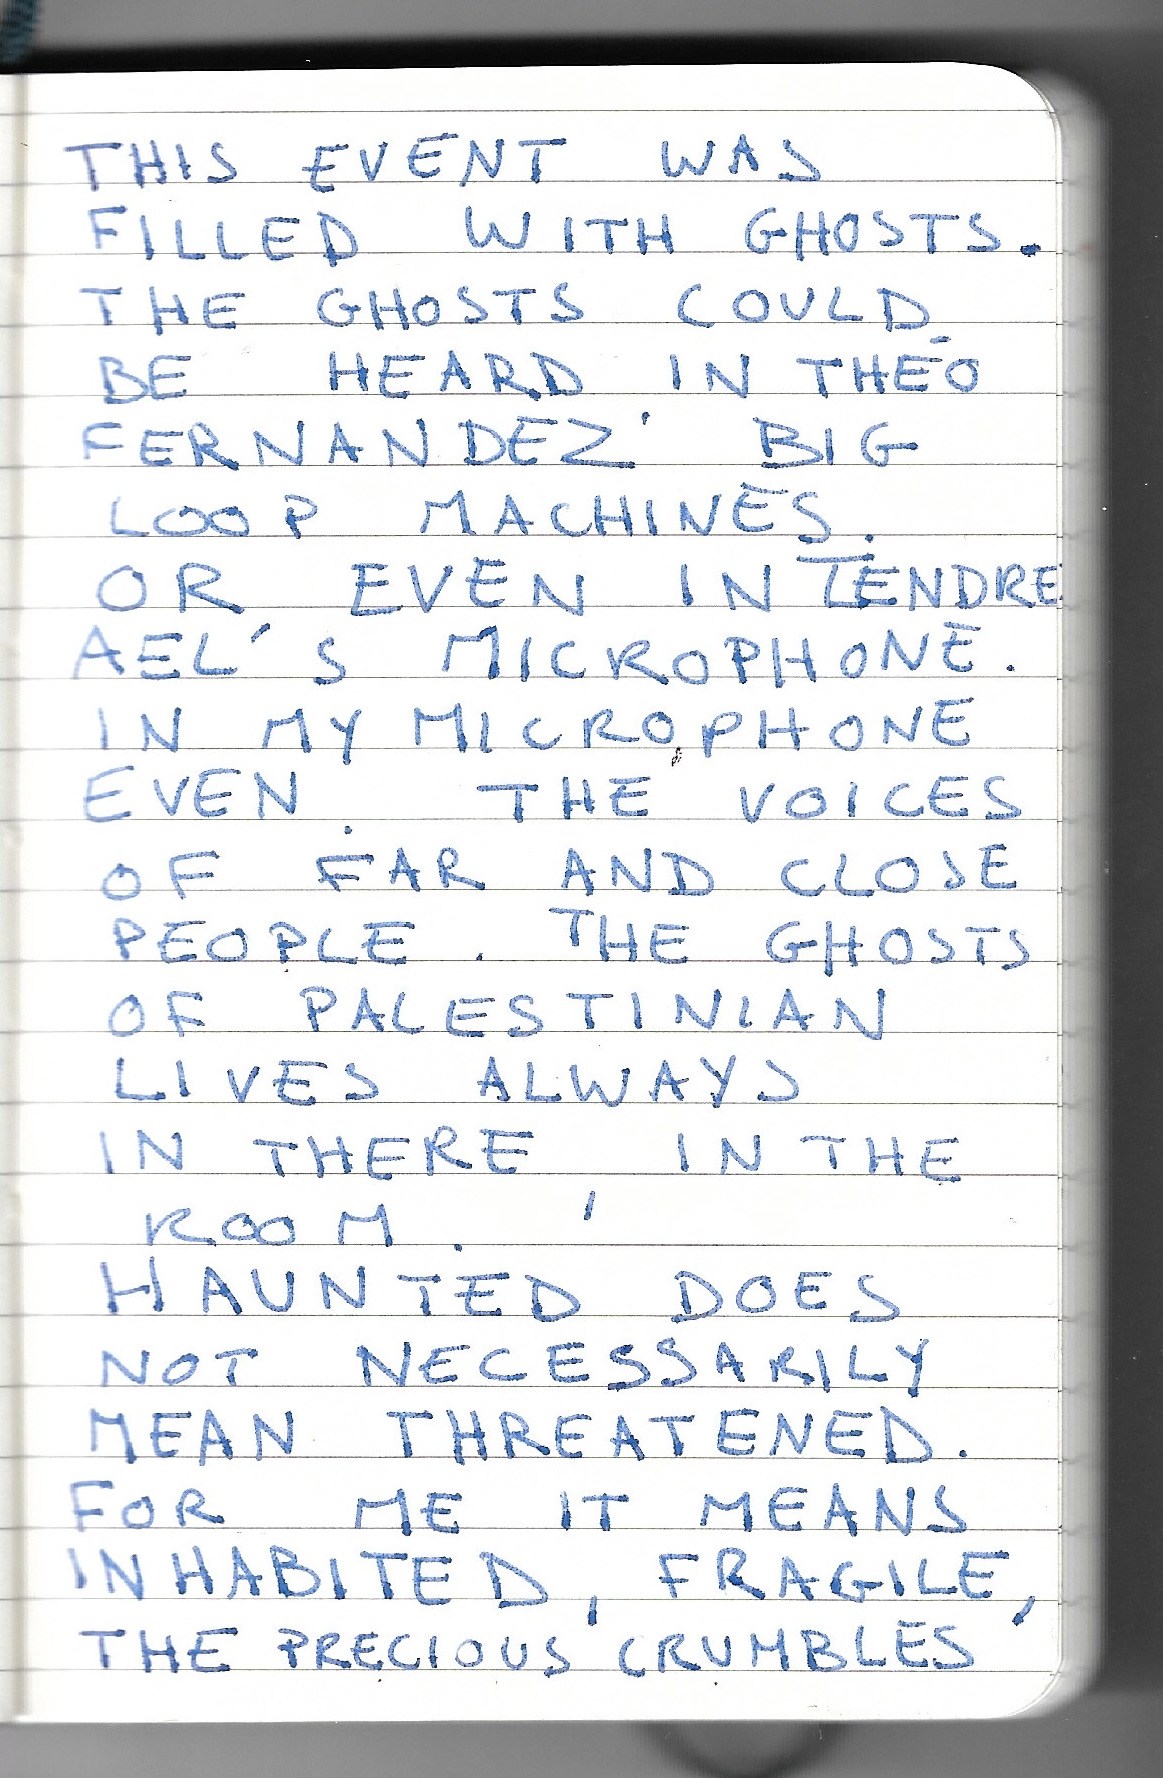 THIS EVENT WAS
FILLED WITH GHOSTS.
THE GHOSTS COULD
BE HEARD IN THÉO
FERNANDEZ' BIG
LOOP MACHINES.
OR EVEN IN TENDRE
AEL'S MICROPHONE.
IN MY MICROPHONE
EVEN. THE VOICES
OF FAR AND CLOSE
PEOPLE. THE GHOSTS
OF PALESTINIAN
LIVES ALWAYS
IN THERE, IN THE
ROOM.
HAUNTED DOES
NOT NECESSARILY
MEAN THREATENED.
FOR ME IT MEANS
INHABITED, FRAGILE,
THE PRECIOUS CRUMBLES